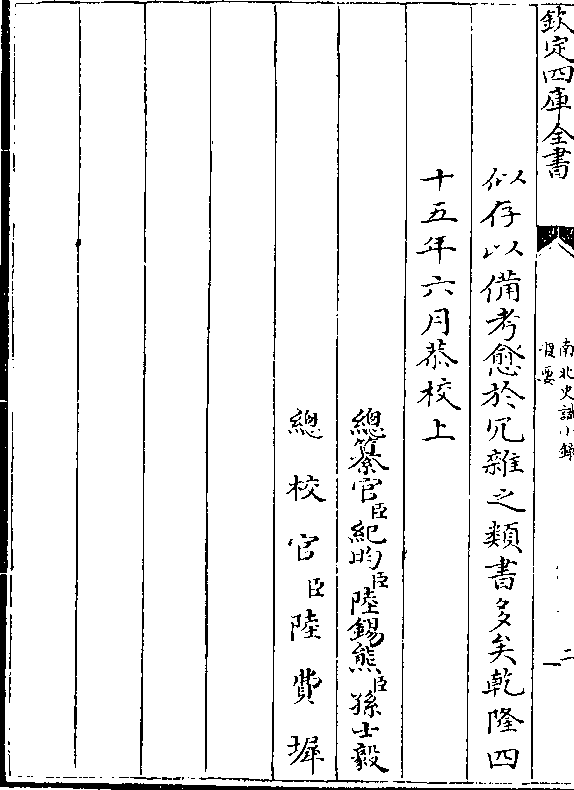 欽定四庫全書
南北史識小錄
提要
二
似存以備考愈於冗雜之類書多矣乾隆四
十五年六月恭校上
總纂官臣紀昀臣陸錫熊臣孫士毅
總校官臣陸費墀